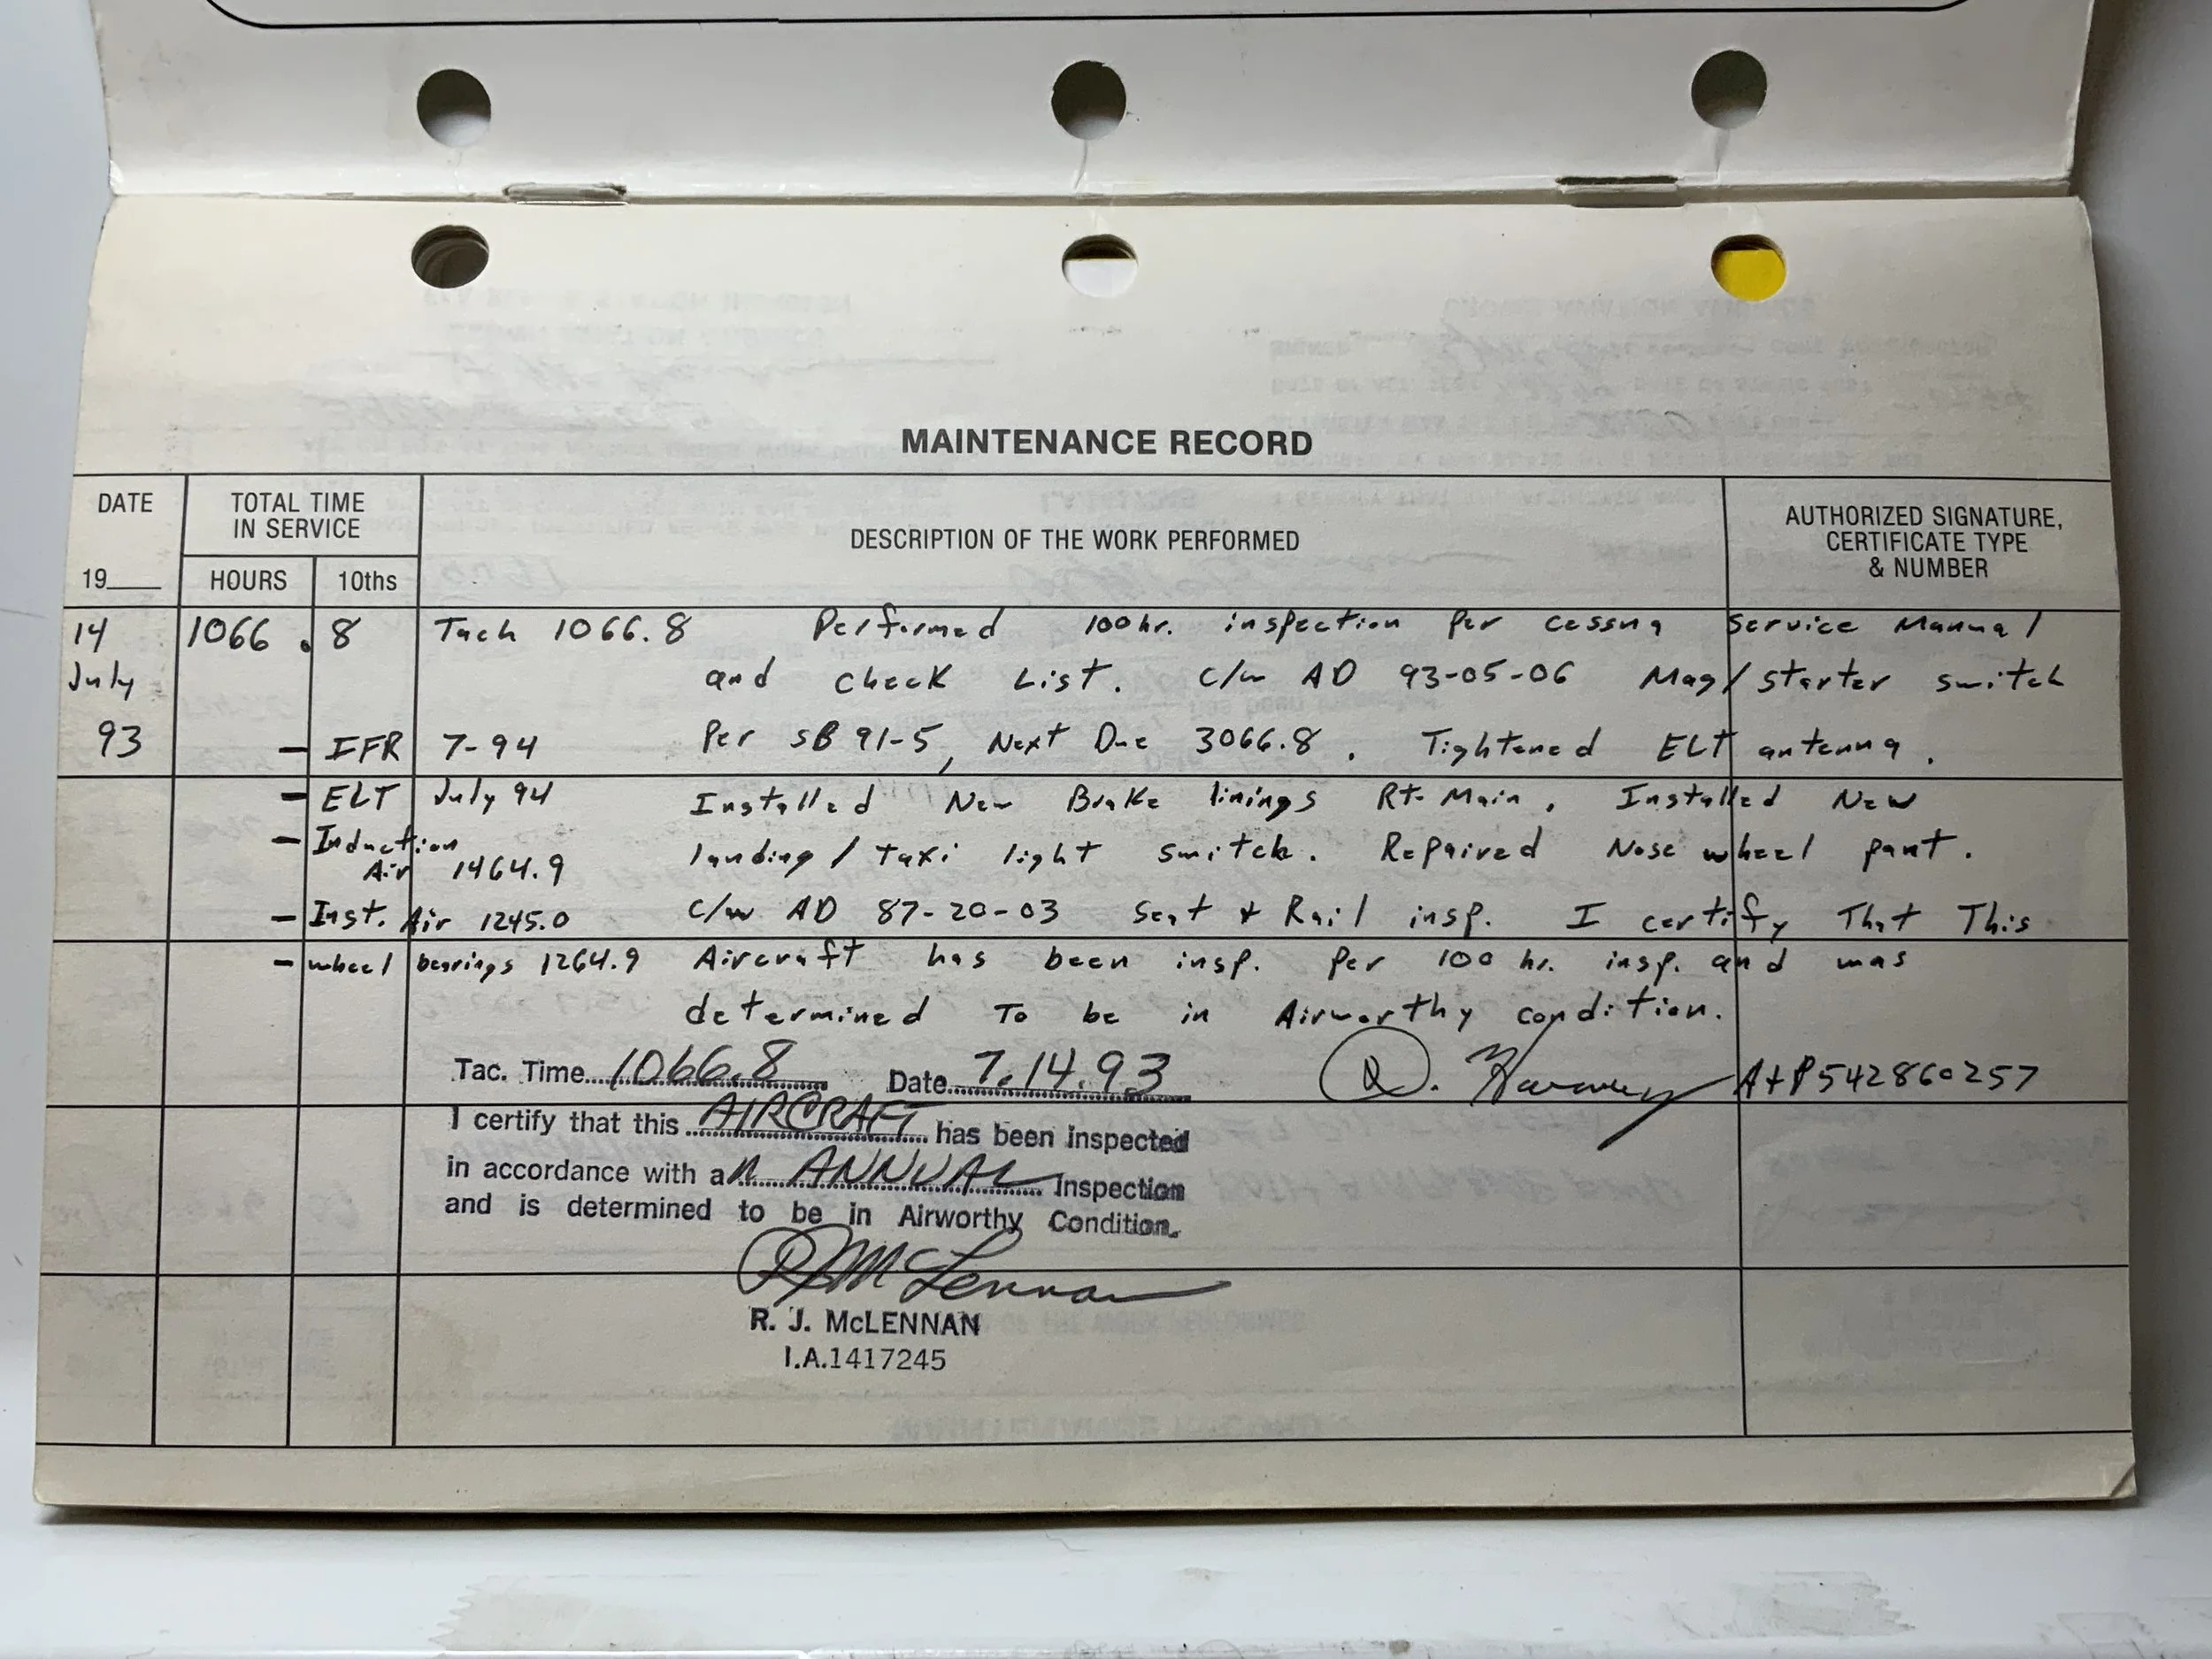 MAINTENANCE RECORD
DATE
19____
TOTAL TIME
IN SERVICE
HOURS
10ths
DESCRIPTION OF THE WORK PERFORMED
AUTHORIZED SIGNATURE,
CERTIFICATE TYPE
& NUMBER
14
July
93
1066 . 8
Tach 1066.8 Performed 100 hr. inspection per cessna Service Manual
and check List. C/w AD 93-05-06 Mag/starter switch
- IFR 7-94 Per SB 91-5, Next Due 3066.8. Tightened ELT antenna.
- ELT July 94 Installed New Brake linings Rt. Main. Installed New
- Induction
Air 1464.9 landing/taxi light switch. Repaired Nose wheel pant.
- Inst. Air 1245.0 C/w AD 87-20-03 Seat & Rail insp. I certify That This
- wheel bearings 1264.9 Aircraft has been insp. per 100 hr. insp. and was
determined To be in Airworthy condition.
Tac. Time 1066.8 Date 7.14.93 A+P542860257
I certify that this AIRCRAFT has been inspected
in accordance with an ANNUAL Inspection
and is determined to be in Airworthy Condition.
RJ McLennan
R. J. McLENNAN
I.A.1417245